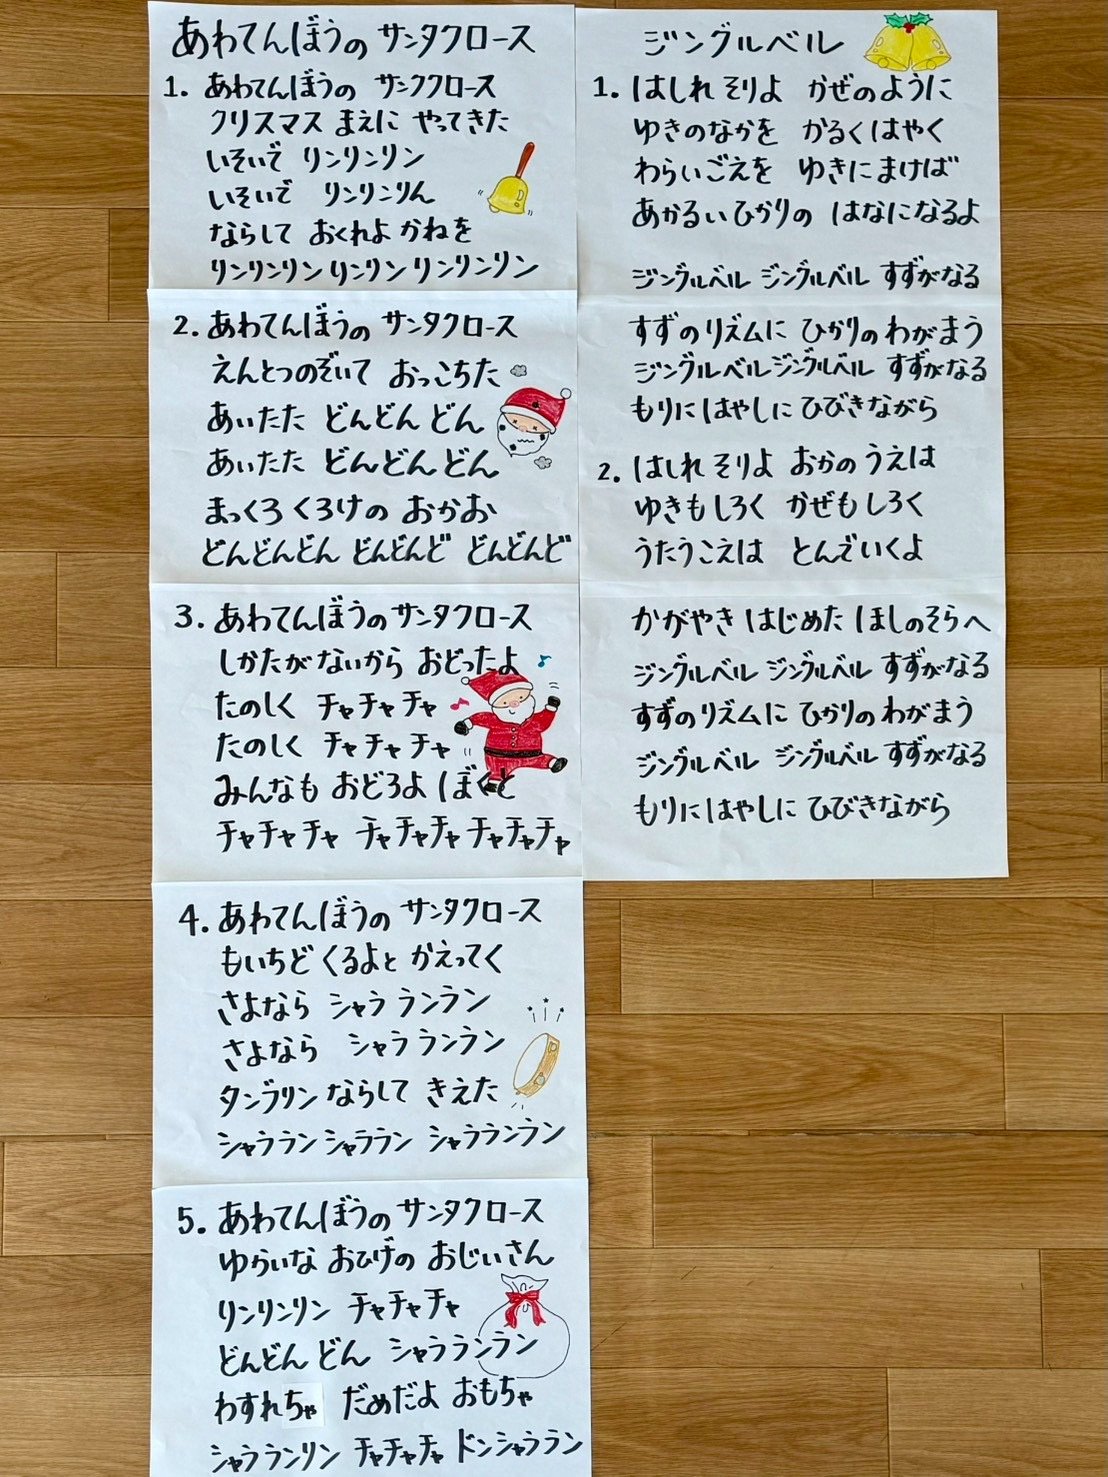 あわてんぼうの サンタクロース
1. あわてんぼうの サンククロース
クリスマス まえに やってきた
いそいで リンリンリン
いそいで リンリンりん
ならして おくれよ かねを
リンリンリン リンリン リンリンリン
2. あわてんぼうの サンタクロース
えんとつのぞいて おっこちた
あいたた どんどん どん
あいたた どんどんどん
まっくろ くろけの おかお
どんどんどん どんどんど どんどんど
3. あわてんぼうのサンタクロース
しかたがないから おどったよ
たのしく チャチャチャ
たのしく チャチャチャ
みんなも おどろよ ぼくと
チャチャチャ チャチャチャ チャチャチャ
4. あわてんぼうの サンタクロース
もいちど くるよと かえってく
さよなら シャラ ランラン
さよなら シャラ ランラン
タンブリン ならして きえた
シャララン シャララン シャラランラン
5. あわてんぼうの サンタクロース
ゆらいな おひげの おじいさん
リンリンリン チャチャチャ
どんどん どん シャラランラン
わすれちゃ だめだよ おもちゃ
シャラランリン チャチャチャ ドンシャララン
ジングルベル
1. はしれ そりよ かぜのように
ゆきのなかを かるくはやく
わらいごえを ゆきにまけば
あかるいひかりの はなになるよ
ジングルベル ジングルベル すずがなる
すずのリズムに ひかりのわがまう
ジングルベルジングルベル すずがなる
もりにはやしにひびきながら
2. はしれ そりよ おかの うえは
ゆきもしろく かぜもしろく
うたうこえは とんでいくよ
かがやき はじめた ほしのそらへ
ジングルベル ジングルベル すずがなる
すずのリズムに ひかりのわがまう
ジングルベル ジングルベル すずがなる
もりにはやしに ひびきながら